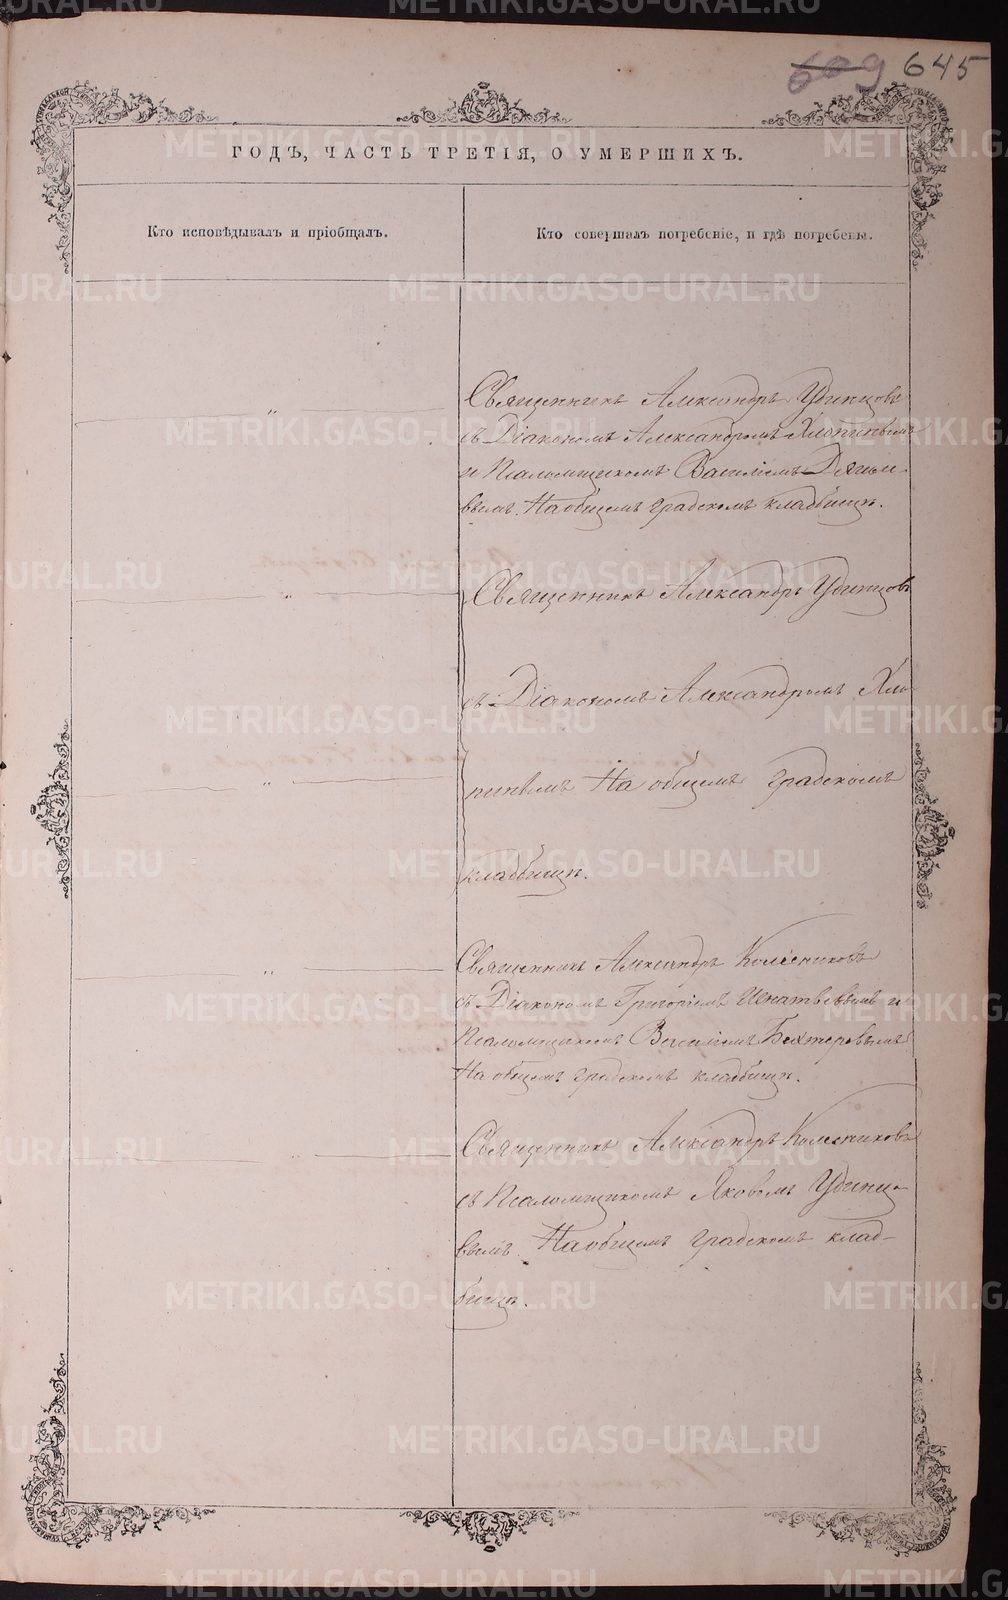 609 645
ГОДЪ, ЧАСТЬ ТРЕТІЯ, О УМЕРШИХЪ.
Кто исповѣдывалъ и пріобщалъ.
Кто совершалъ погребеніе, и гдѣ погребены.
Священникъ Александръ Удинцовъ
съ Діакономъ Александромъ Хлопинымъ
и Псаломщикомъ Василіемъ
вымъ. На общемъ градскомъ кладбищѣ.
Священникъ Александръ Удинцовъ
съ Діакономъ Александромъ Хло
пинымъ На общемъ градскомъ
кладбищѣ.
Священникъ Александръ Колесниковъ
съ Діакономъ Григоріемъ Игнатьевымъ и
Псаломщикомъ Василіемъ Бехтеревымъ
На общемъ градскомъ кладбищѣ.
Священникъ Александръ Колесниковъ
съ Псаломщикомъ Яковомъ Удинцо
вымъ. На общемъ градскомъ клад-
бищѣ.
METRIKI.GASO-URAL.RU